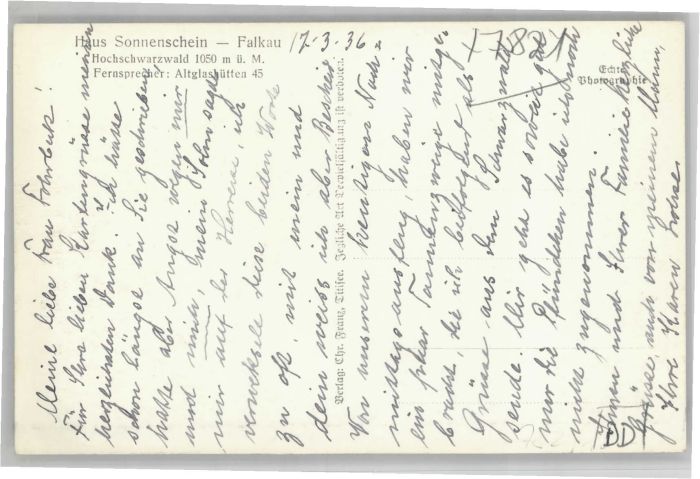 Haus Sonnenschein — Falkau
Hochschwarzwald 1050 m ü. M.
Fernsprecher: Altglashütten 45
17-3-36
17821
Echte
Photographie
Verlag: Chr. Franz, Titisee. Jegliche Art Vervielfältigung ist verboten.
Meine liebe Frau
Für Ihre lieben Kartengrüsse meinen
herzlichsten Dank. Ich hätte
schon längst an Sie geschrieben
hatte aber Angst wegen mir
und mich, mein Sohn sagte
mir auf der Herreise, ich
verwechsele diese beiden Worte
zu oft, mit mein und
dein weiss ich aber Bescheid
Von unserem heutigen Nach-
mittagsausflug, haben wir
ein paar Tannenzweige mitge-
bracht, die ich beifolgend als
Grüsse aus dem Schwarzwald
sende. Mir geht es soweit gut
nur die Pfündchen habe ich noch
nicht zugenommen.
Ihnen und Ihrer Familie herzliche
Grüsse, auch von meinem Mann,
Ihre Karen
DD